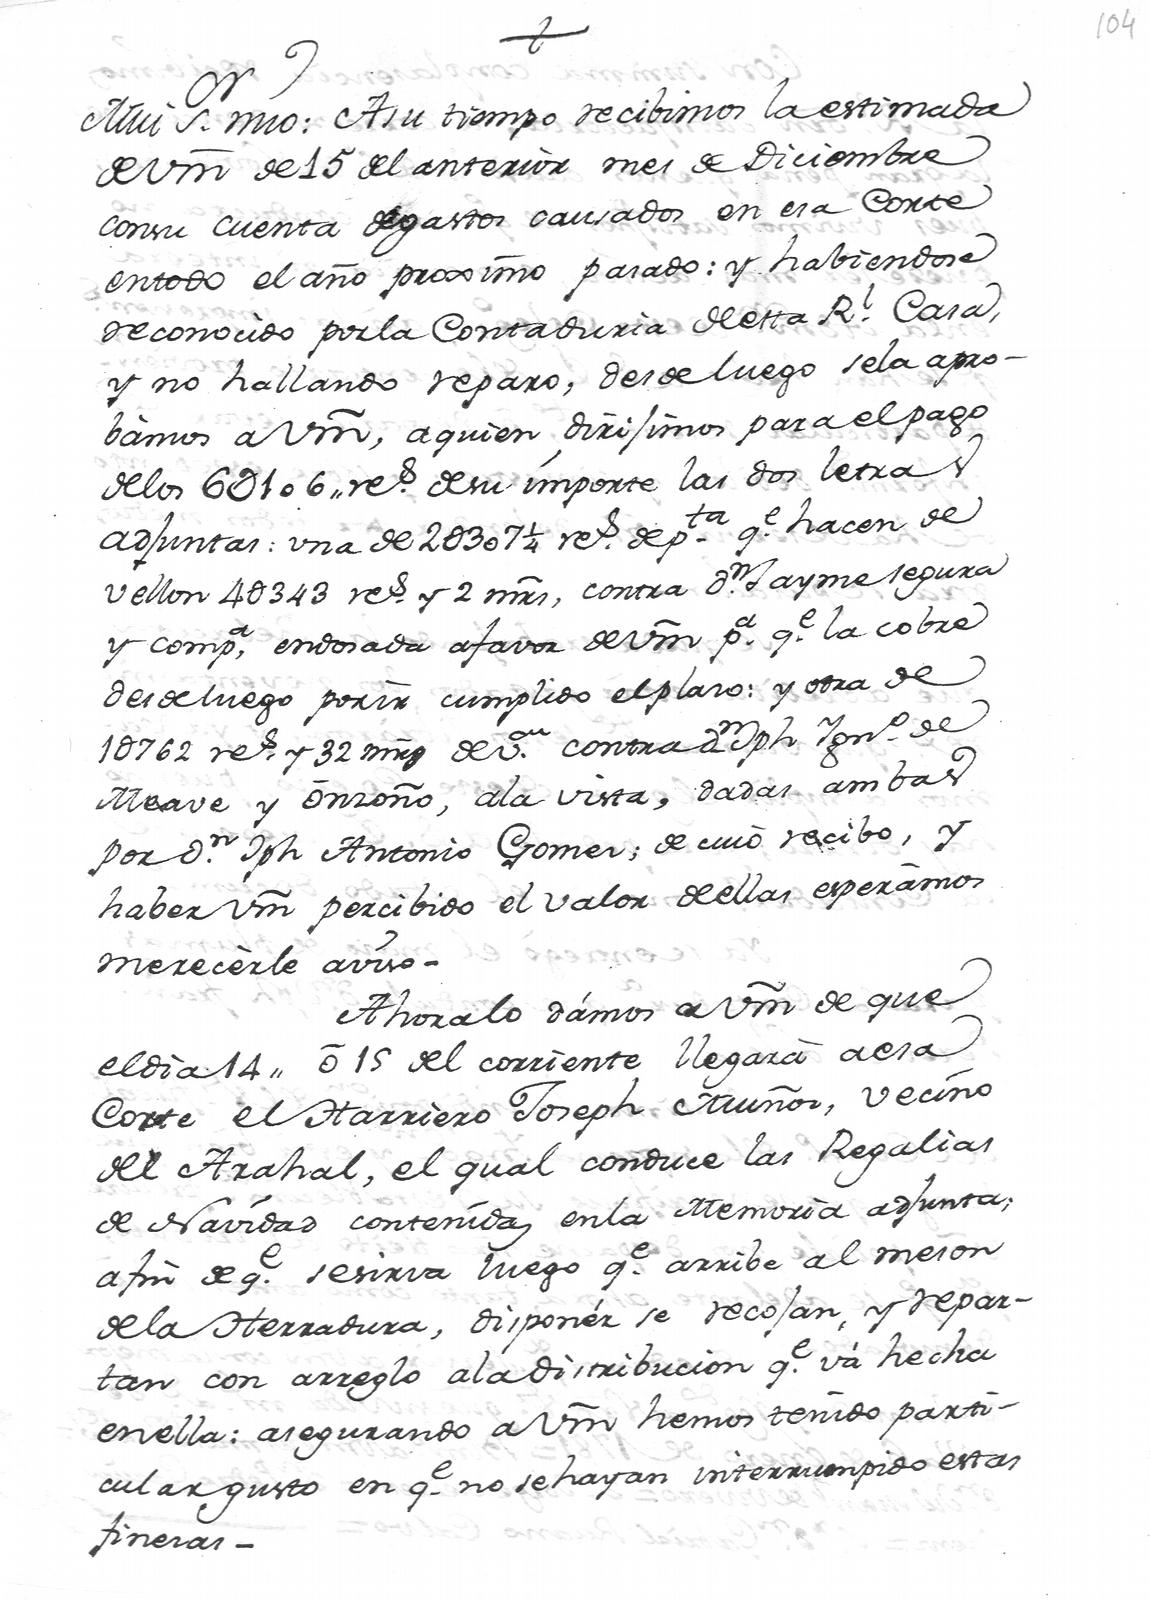 104
Mui S.or mio: A su tiempo recibimos la estimada
de Vm̄ de 15 del anterior mes de Diciembre
con su cuenta de gastos causados en esa Corte
en todo el año proximo pasado: y habiendose
reconocido por la Contaduria de esta R.l Casa,
y no hallando reparo, desde luego se la apro-
bámos a Vm̄, a quien dirijimos para el pago
de los 6Ɖ106,, re.s de su importe las dos letras
adjuntas: una de 2Ɖ307¼ re.s de p.ta q.e hacen de
vellon 4Ɖ343 re.s y 2 mrs, contra d.n Jayme Segura
y comp.a, endosada a favor de Vm̄ p.a q.e la cobre
desde luego por ir cumplido el plaso: y otra de
1Ɖ762 re.s y 32 mrs de v.on contra d.n Jph Ygn.o de
Meave y Onzoño, a la vista, dadas ambas
por d.n Jph Antonio Gomes; de cuio recibo, y
haber Vm̄ percibido el valor de ellas esperámos
merecèrle aviso-
Ahora lo dámos a Vm̄ de que
el dia 14,, ō 15 del corriente llegarà a esa
Corte el Harriero Joseph Muños, vecino
del Arahal, el qual conduce las Regalias
de Navidad contenidas en la Memoria adjunta;
a fin de q.e se sirva luego q.e arribe al meson
de la Herradura, disponér se recojan, y repar-
tan con arreglo a la distribucion q.e vá hecha
en ella: asegurando a Vm̄ hemos tenido parti-
cular gusto en q.e no se hayan interrumpido estas
finesas-